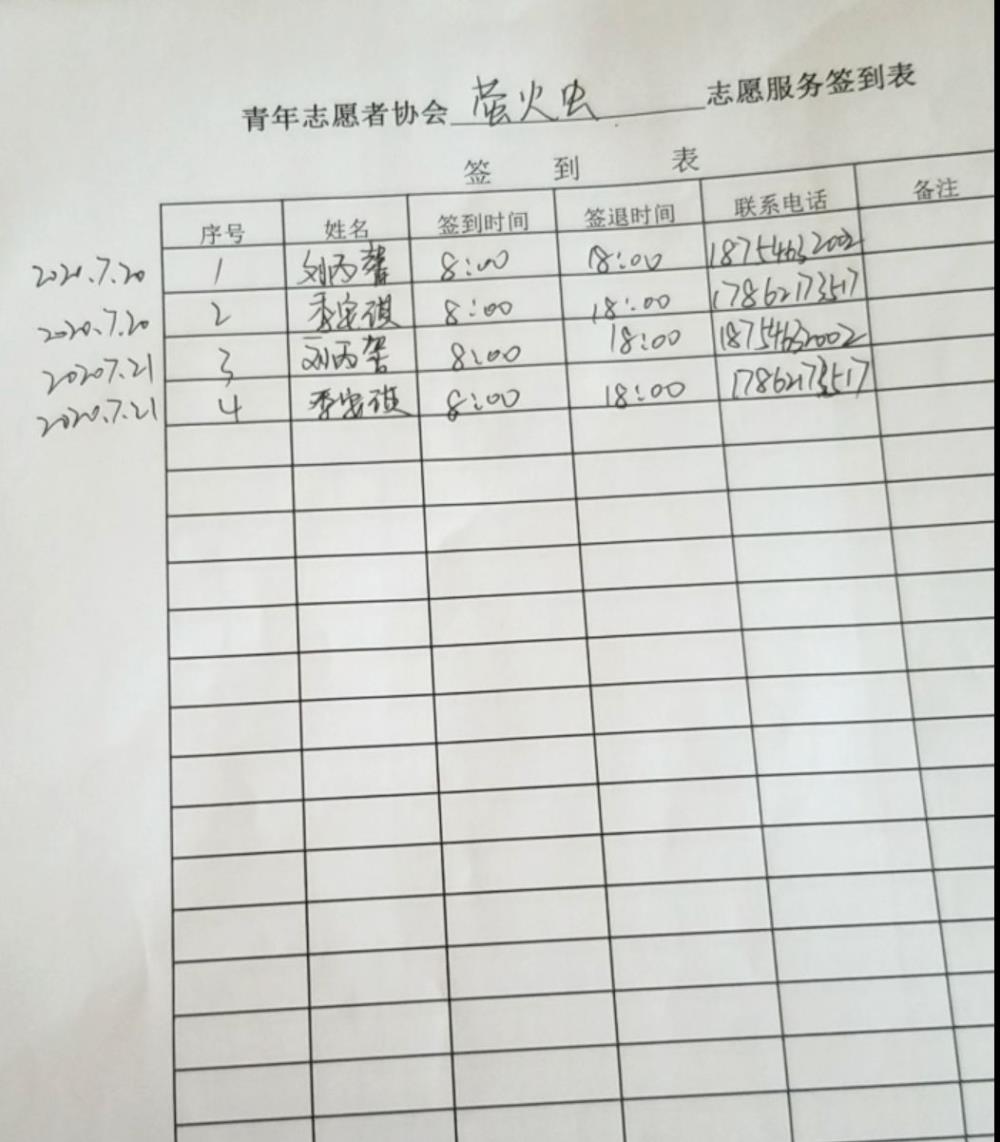 青年志愿者协会 萤火虫 志愿服务签到表
签 到 表
序号 姓名 签到时间 签退时间 联系电话 备注
2020.7.20 1 刘丙馨 8:00 18:00 18754632002
2020.7.20 2 季安琪 8:00 18:00 17862173517
2020.7.21 3 刘丙 8:00 18:00 18754632002
2020.7.21 4 季安琪 8:00 18:00 17862173517